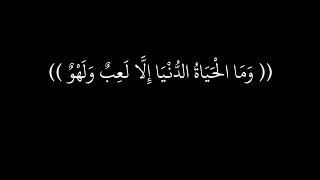 (( وَمَا الْحَيَاةُ الدُّنْيَا إِلَّا لَعِبٌ وَلَهْوٌ ))